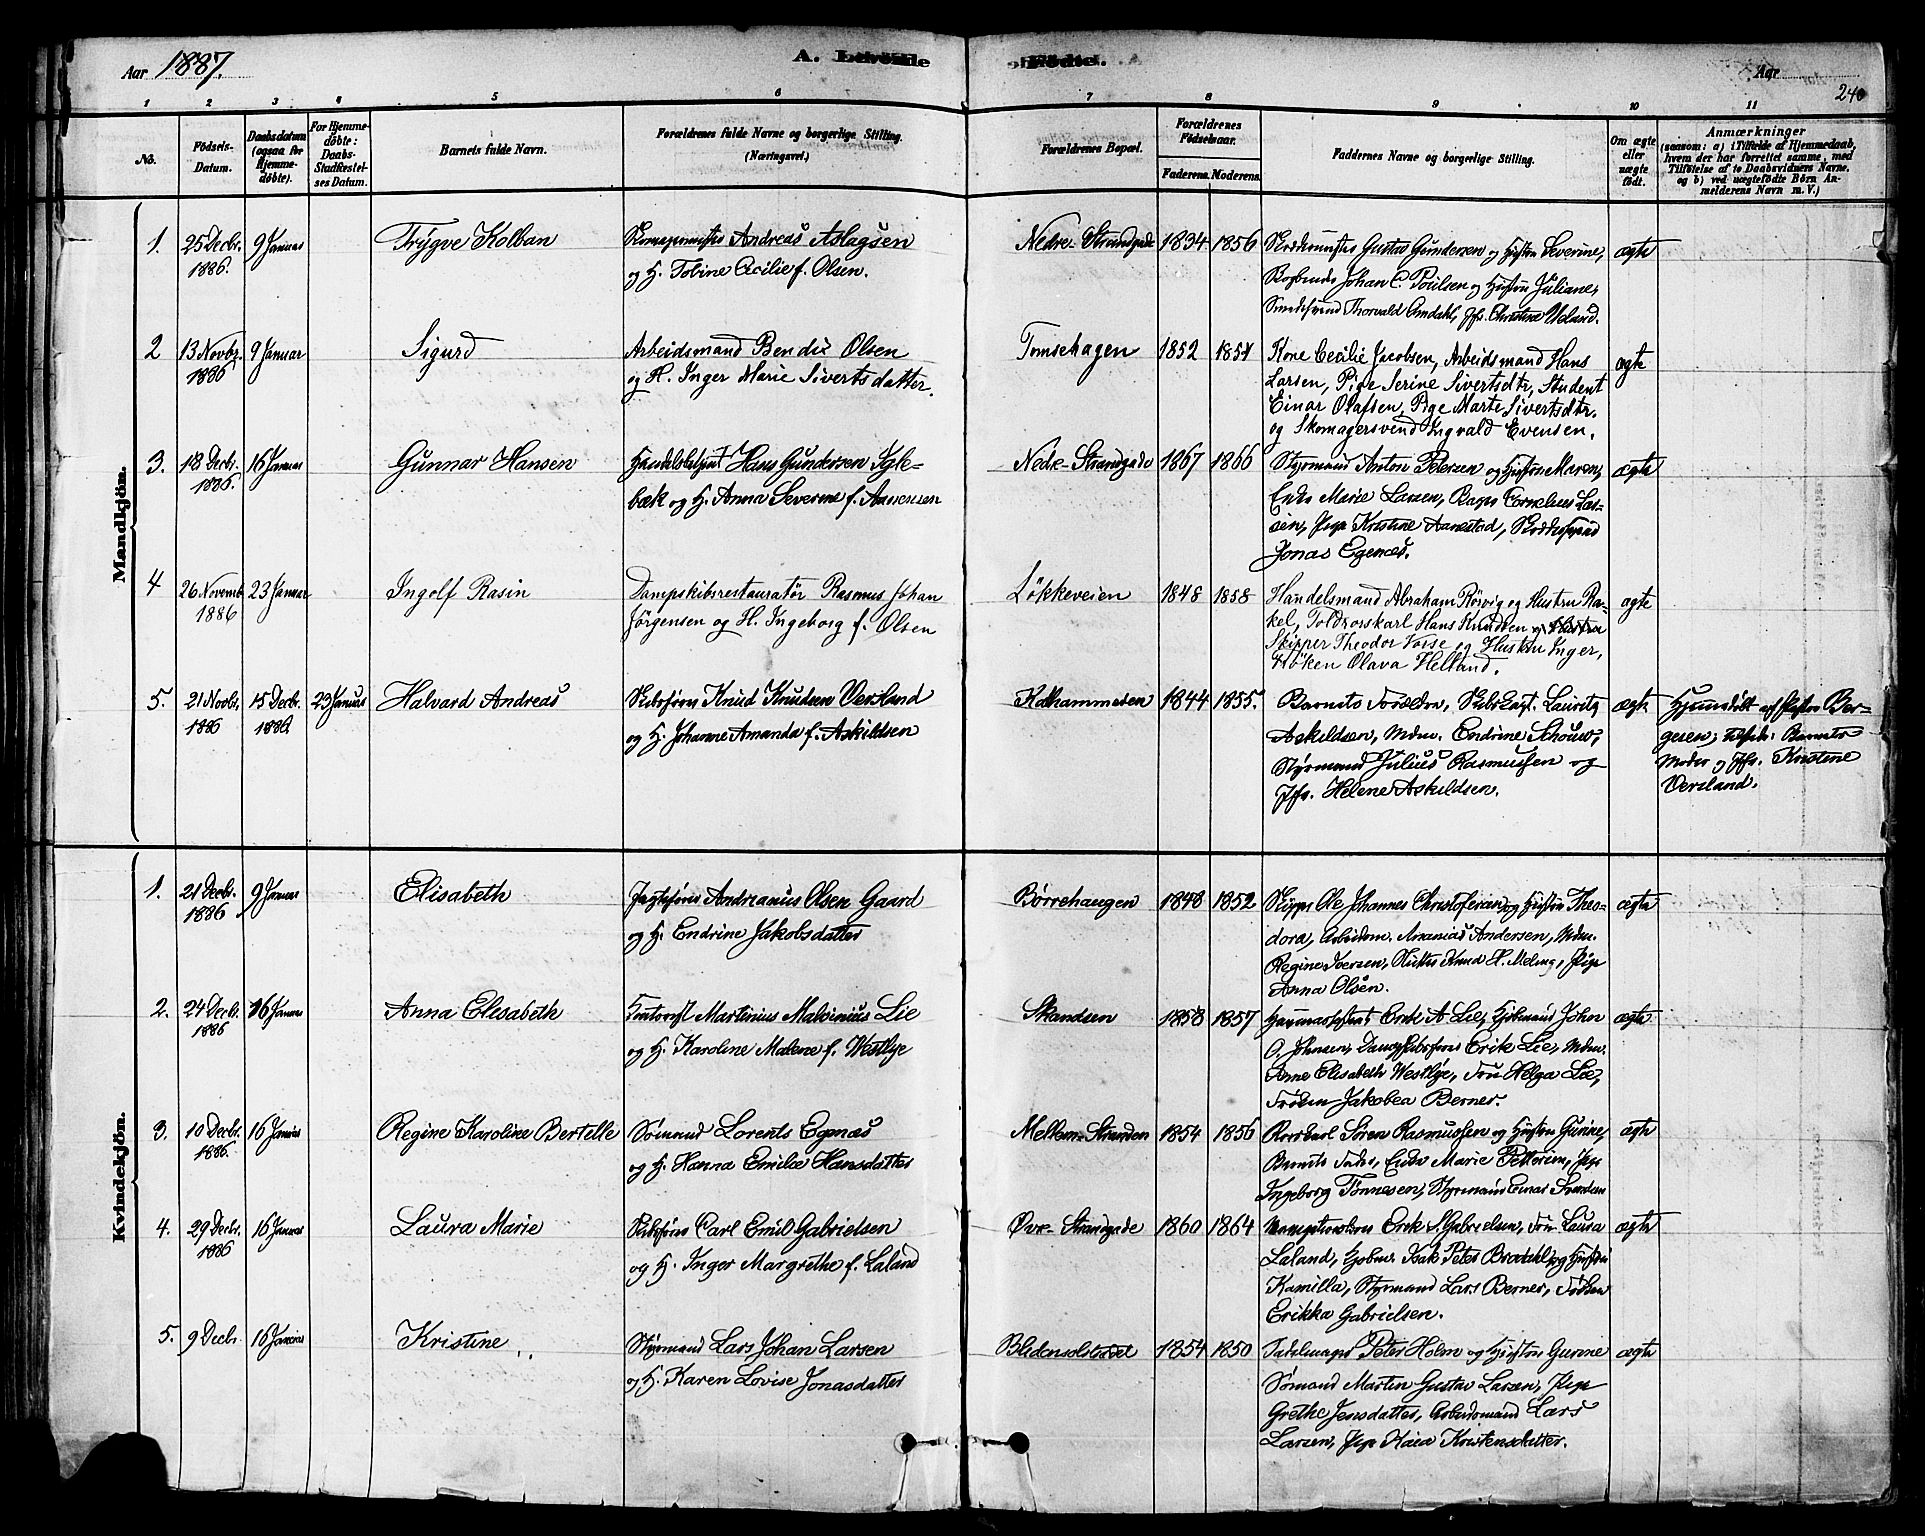 Aar 1887.
A. Levende Fødte.
Aar
240
1 2 3 4 5 6 7 8 9 10 11
No.
Fødsels-
Datum.
Daabsdatum
(ogsaa for
Hjemme-
døbte).
For Hjemme-
døbte:
Daabs-
Stadfæstel-
ses Datum.
Barnets fulde Navn.
Forældrenes fulde Navne og borgerlige Stilling.
(Næringsvei.)
Forældrenes Bopæl.
Forældrenes
Fødselsaar.
Faderens. Moderens.
Faddernes Navne og borgerlige Stilling.
Om ægte
eller
uægte
født.
Anmærkninger
(saasom: a) i Tilfælde af Hjemmedaab,
hvem der har forrettet samme, med
Tilføielse af to Daabsvidners Navne,
og b) ved uægtefødte Børn An-
melderens Navn m. V.)
Mandkjön.
1. 25 Decbr. 1886. 9 Januar
Trygve Kolban
Andreas Aslagsen
og H. Tobine Cecilie f. Olsen.
Nedre Strandgade 1834 1856
Gustav Gundersen og Hustru Severine,
Johan C. Poulsen og Hustru Juliane,
Smedesvend Thorvald Omdahl, Jfr. Christine Ueland.
ægte
2 13 Novbr. 1886 9 Januar
Sigurd
Arbeidsmand Bendix Olsen
og H. Inger Marie Sivertsdatter.
Tomsehagen 1852 1851
Kone Cecilie Jacobsen, Arbeidsmand Hans
Larsen, Pige Serine Sivertsdtr, Student
Einar Olafsen, Pige Marte Sivertsdtr.
og Skomagersvend Ingvald Evensen.
ægte
3. 18 Decbr. 1886. 16 Januar
Gunnar Hansen
Handelsbetjent Hans Gundersen Igle-
bæk og H. Anna Severine f. Annensen
Nedre Strandgade 1867 1866
Styrmand Anton Petersen og Hustru Maren,
Enke Marie Larsen, Bager Cornelius Lar-
sen, Pige Kristine Aanestad,
Jonas Egenæs.
ægte
4 26 Novemb. 1886 23 Januar
Ingolf Rasin
Dampskibsrestauratør Rasmus Johan
Jörgensen og H. Ingeborg f. Olsen
Lökkeveien 1848 1858
Handelsmand Abraham Rörvig og Hustru Ra-
kel, Toldrorskarl Hans Knudsen og Hustru
Skipper Theodor Vorse og Hustru Inger,
Fröken Olava Helland.
ægte
5. 21 Novbr. 1886 15 Decbr. 1886 23 Januar
Halvard Andreas
Skibsfører Knud Knudsen Versland
og H. Johanne Amanda f. Askildsen
Kalhammeren 1844 1855.
Barnets Forældre, Skibscapt. Lauritz
Askildsen, Mdm. Endrine Schouw,
Styrmand Julius Rasmussen og
Jfr. Helene Askildsen.
ægte
Hjemmedøbt af Ber-
gesen; Barnets
Moder og Jfr. Kristine
Versland.
Kvindekjön.
1. 21 Decbr. 1886 9 Januar
Elisabeth
Jagtefører Andreanus Olsen Gaard
og H. Endrine Jakobsdatter
Børrehaugen 1848 1852
Skipper Ole Johannes Christofersen og Hustru Theo-
dora, Arbeidsm. Ananias Andersen, Mdm.
Regine Iversen, Knud H. Meling, Pige
Anna Olsen.
ægte
2. 24 Decb. 1886 16 Januar
Anna Elisabeth
Kontorist Martinius Malvinius Lie
og H. Karoline Malene f. Westlye
Skandsen 1858 1857
Erik A. Lie, John
O. Johnsen, Dampskibsfører Erik Lie, Mdm.
Anne Elisabeth Westlye, Fru Helga Lie,
Frøken Jakobea Berner.
ægte
3. 10 Decbr. 1886. 16 Januar
Regine Karoline Bertille
Sømand Lorents Egenæs
og H. Hanna Emilie Hansdatter
Mellem Stranden 1854 1856
Rorskarl Søren Rasmussen og Hustru Gurine,
Barnets Fader, Enke Marie Pettersen, Pige
Ingeborg Tønnesen, Styrmand Einar Svendsen
ægte
4. 29 Decbr. 1886 16 Januar
Laura Marie
Skibsfører Carl Emil Gabrielsen
og H. Inger Margrethe f. Laland
Øvre Strandgade 1860 1864
Erik S. Gabrielsen, Fru Laura
Laland, Isak Peter Bredahl og Hustru
Kamilla, Styrmand Lars Berner, Frøken
Erikka Gabrielsen.
ægte
5. 9 Decbr. 16 Januar
Kristine
Styrmand Lars Johan Larsen
og H. Karen Lovise Jonasdatter
Blidensolstrædet 1854 1850
Sadelmager Peter Holm og Hustru Gurine
Sømand Martin Gustav Larsen, Pige
Grethe Jensdatter, Arbeidsmand Lars
Larsen, Pige Kristensdatter.
ægte